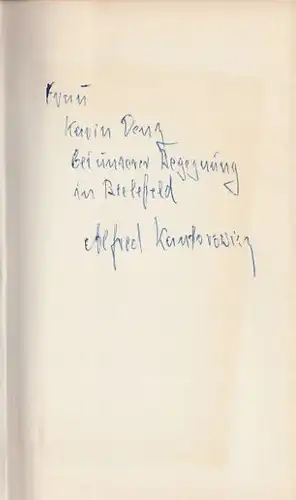 Frau
Karin Denz
bei unserer Begegnung
in Bielefeld
Alfred Kantorowicz